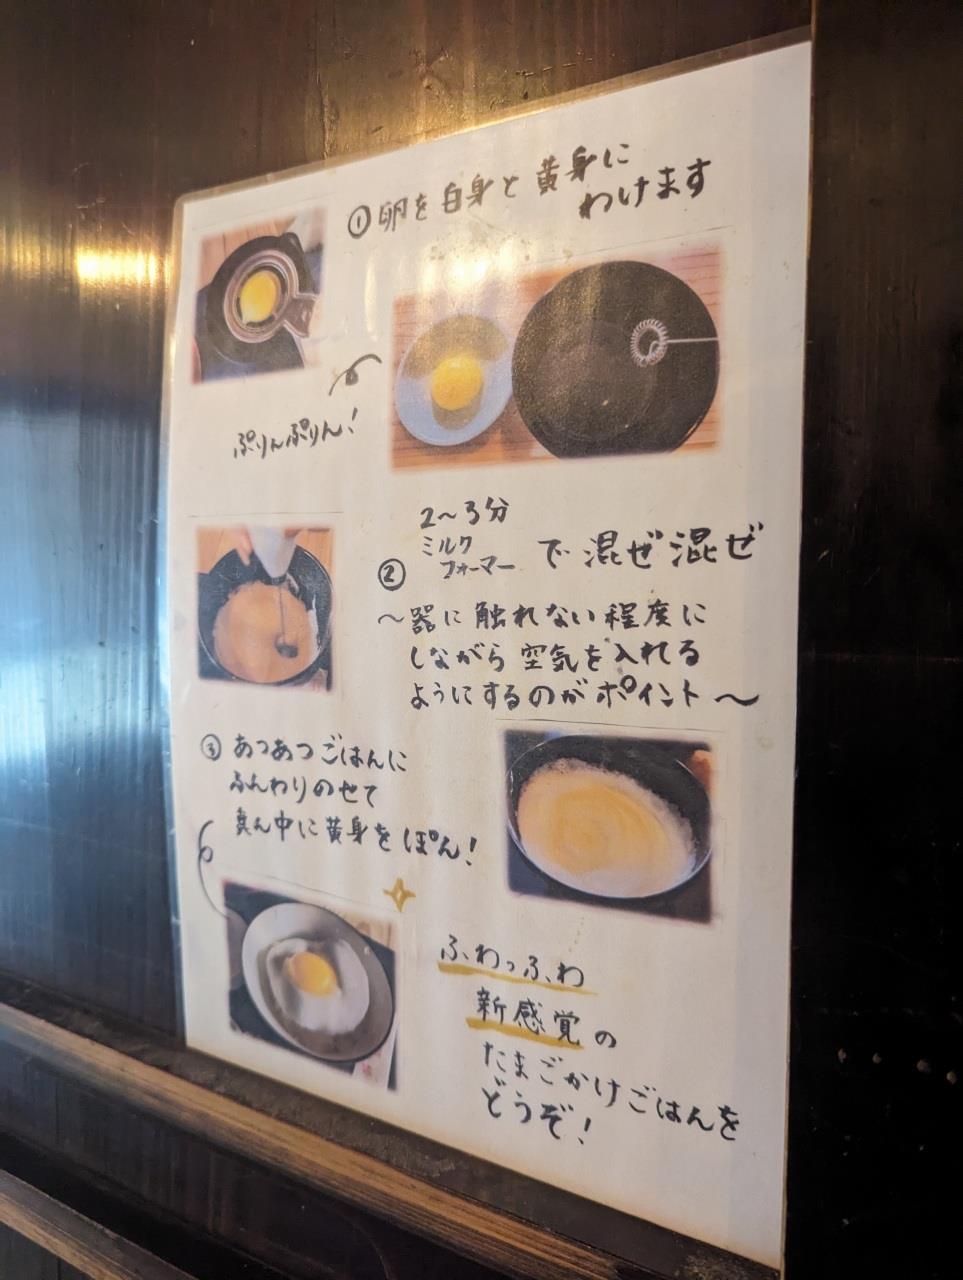 ①卵を白身と黄身に
わけます
ぷりんぷりん!
2~3分
②ミルクフォーマーで混ぜ混ぜ
~器に触れない程度に
しながら空気を入れる
ようにするのがポイント~
③あつあつごはんに
ふんわりのせて
真ん中に黄身をぽん!
ふわっふわ
新感覚の
たまごかけごはんを
どうぞ!